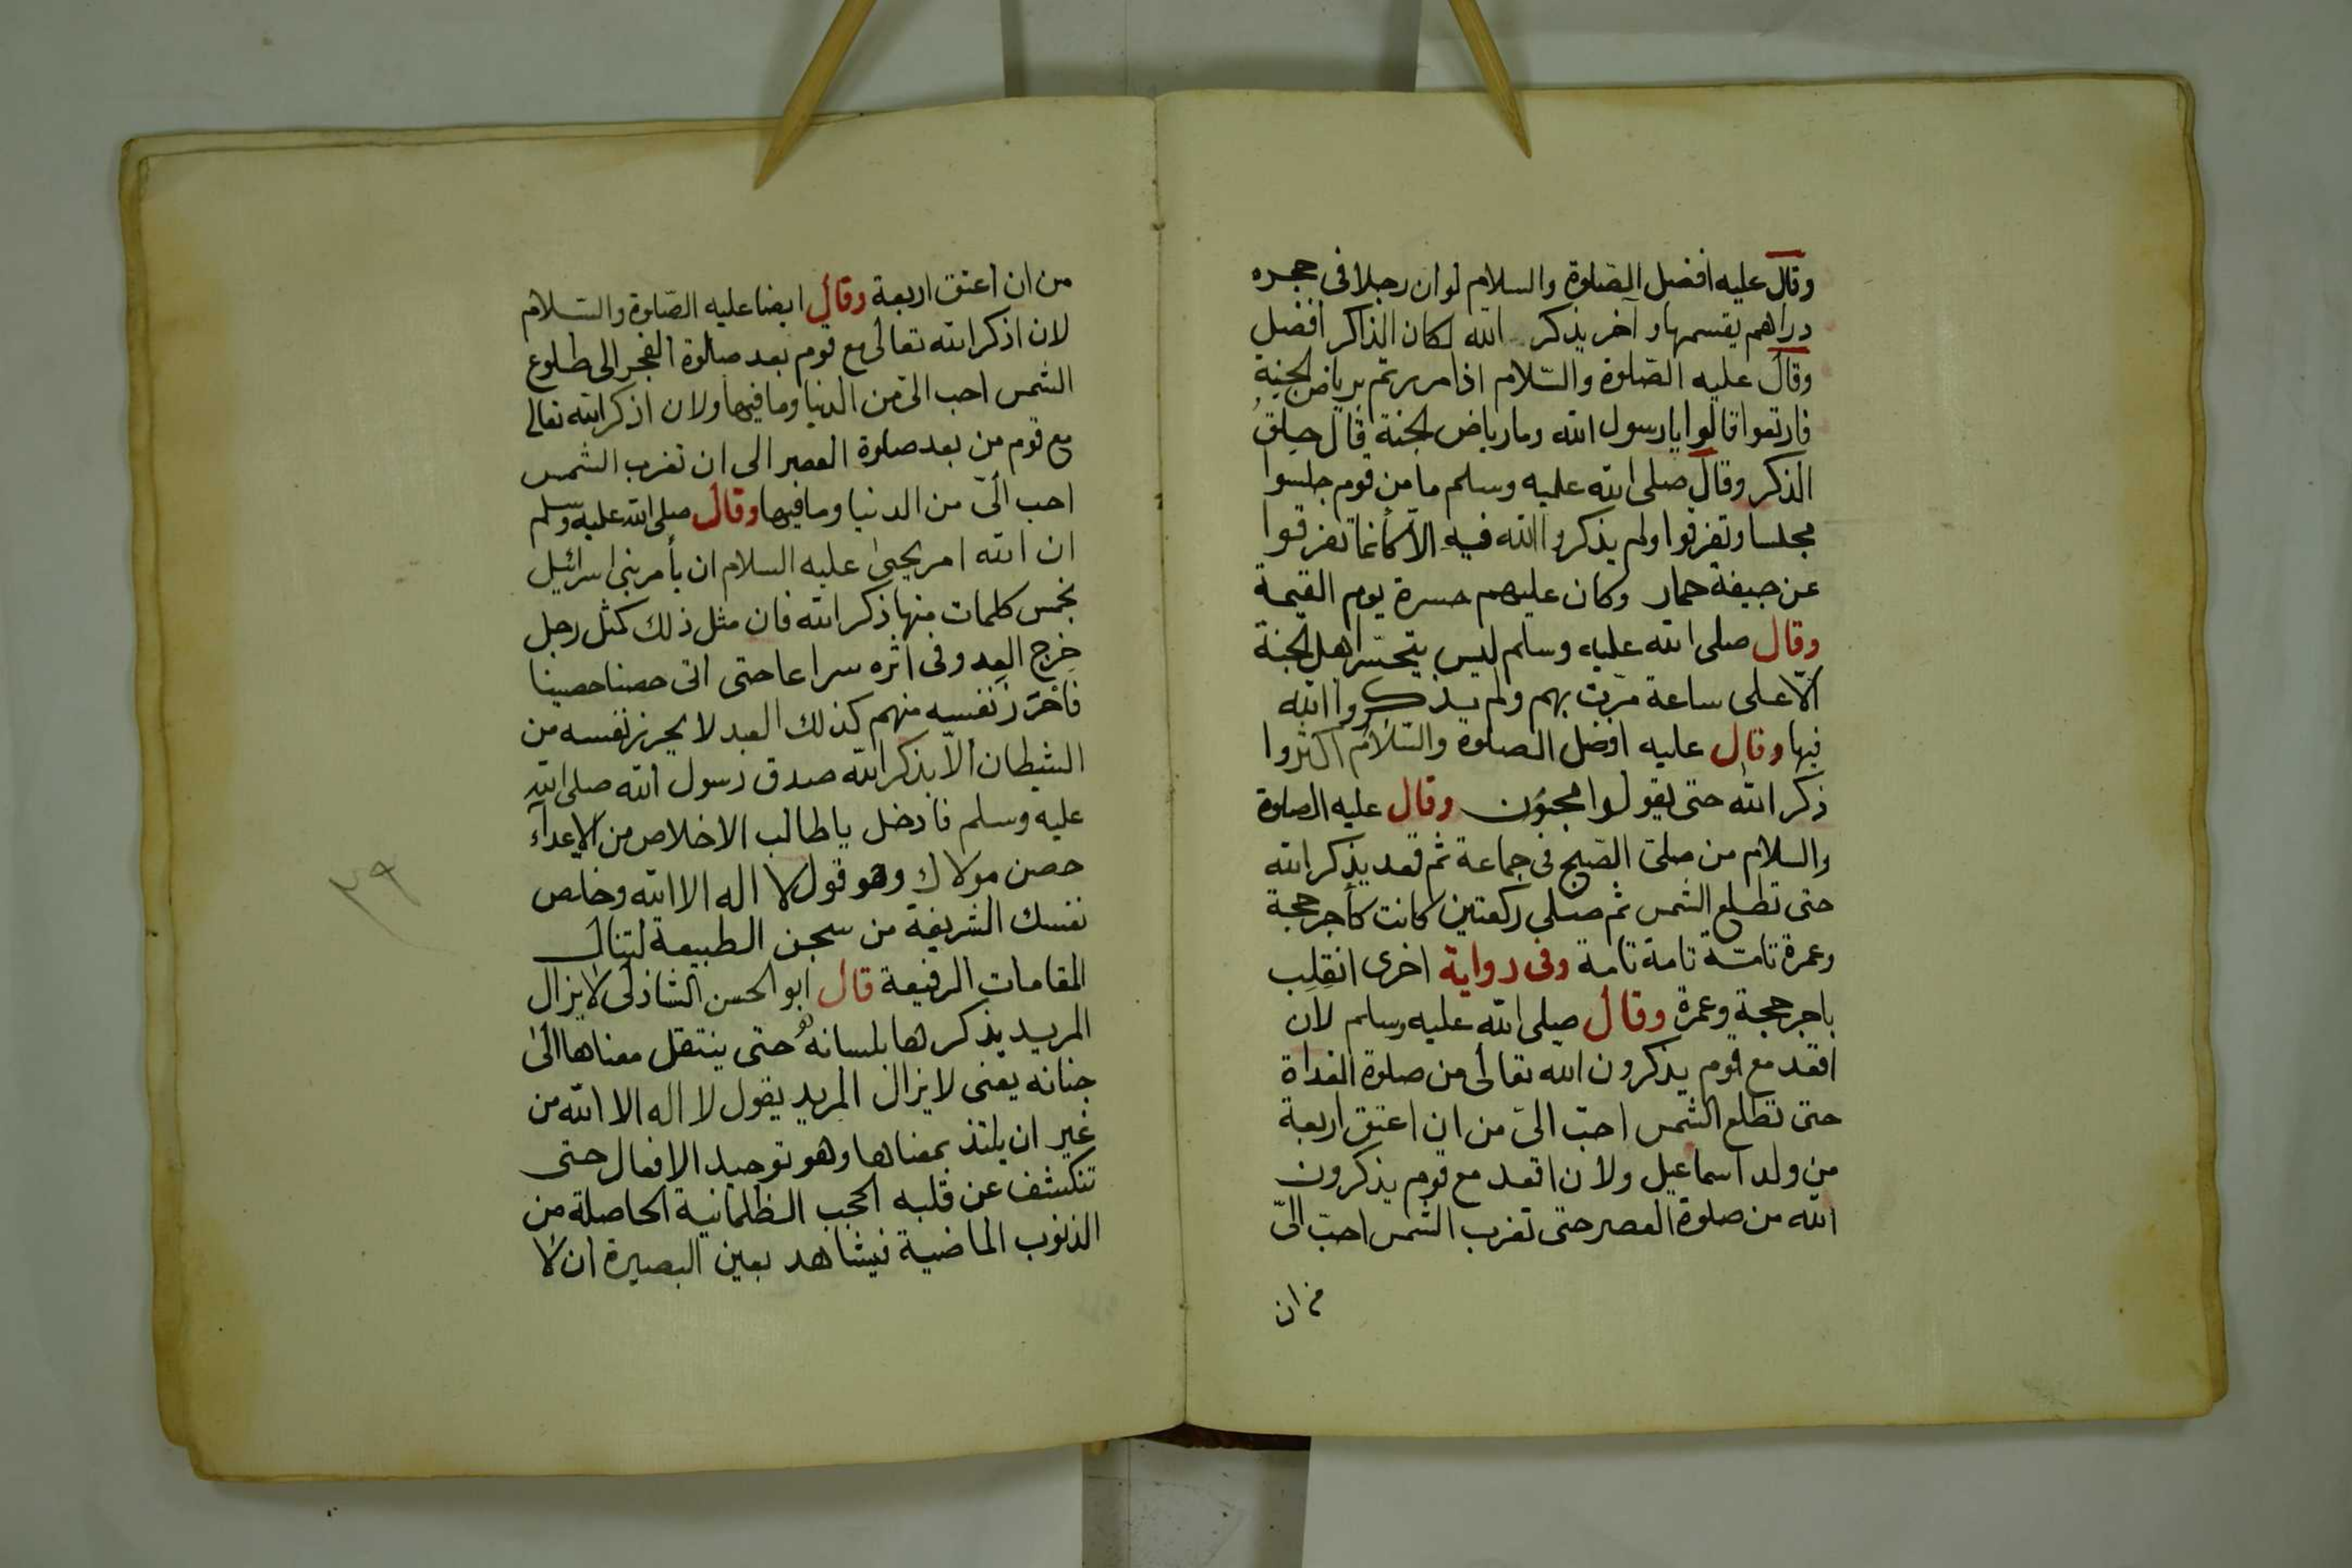 وقال عليه افضل الصلوة والسلام لو ان رجلا فى حجره
دراهم يقسمها وآخر يذكر الله لكان الذاكر افضل
وقال عليه الصلوة والسّلام اذا مررتم برياض الجنة
فارتعوا قالوا يا رسول الله وما رياض الجنة قال حِلَقُ
الذكر وقال صلى الله عليه وسلم ما من قوم جلسوا
مجلسا وتفرقوا ولم يذكروا الله فيه الّا كأنما تفرقوا
عن جيفة حمار وكان عليهم حسرة يوم القيمة
وقال صلى الله عليه وسلم ليس يتحسّر اهل الجنة
الّا على ساعة مرّت بهم ولم يذكروا الله
فيها وقال عليه افضل الصلوة والسّلام اكثروا
ذكر الله حتى يقولوا مجنون وقال عليه الصلوة
والسلام من صلىّ الصّبح فى جماعة ثم قعد يذكر الله
حتى تطلع الشمس ثم صلى ركعتين كانت كأجر حجة
وعمرة تامّة تامة تامة وفى رواية اخرى انقلب
باجر حجة وعمرة وقال صلى الله عليه وسلم لأن
اقعد مع قوم يذكرون الله تعالى من صلوة الغداة
حتى تطلع الشمس احبّ الىّ من ان اعتق اربعة
من ولد اسماعيل ولأن اقعد مع قوم يذكرون
الله من صلوة العصر حتى تغرب الشمس احبّ الىّ
من ان
من ان اعتق اربعة وقال ايضا عليه الصّلوة والسّلام
لان اذكر الله تعالى مع قوم بعد صلوة الفجر الى طلوع
الشمس احب الىّ من الدنيا وما فيها ولان اذكر الله تعالى
مع قوم من بعد صلوة العصر الى ان تغرب الشمس
احب الىّ من الدنيا وما فيها وقال صلى الله عليه وسلم
ان الله امر يحيى عليه السلام ان يأمر بنى اسرائيل
بخمس كلمات منها ذكر الله فان مثل ذلك كمثل رجل
خرج العدو فى اثره سراعا حتى اتى حصنا حصينا
فأحرز نفسه منهم كذلك العبد لا يحرز نفسه من
الشيطان الّا بذكر الله صدق رسول الله صلى الله
عليه وسلم فادخل يا طالب الاخلاص من الاعدآء
حصن مولاك وهو قول لا اله الا الله وخلص
نفسك الشريفة من سجن الطبيعة لتنال
المقامات الرفيعة قال ابو الحسن الشاذلى لا يزال
المريد يذكرها بلسانه حتى ينتقل معناها الى
جنانه يعنى لا يزال المريد يقول لا اله الا الله من
غير ان يلتذ بمعناها وهو توحيد الافعال حتى
تنكشف عن قلبه الحجب الظلمانية الحاصلة من
الذنوب الماضية فيشاهد بعين البصيرة ان لا
٢٩